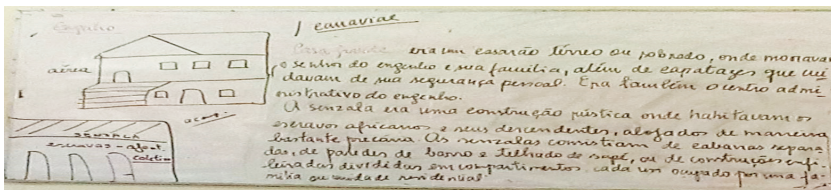 Engenho
canavial
aérea
Casa grande era um casarão térreo ou sobrado, onde morava
o senhor do engenho e sua família, além de capatazes que cui
davam de sua segurança pessoal. Era também o centro admi-
nistrativo do engenho.
A senzala era uma construção rústica onde habitavam os
escravos africanos e seus descendentes, alojados de maneira
bastante precária. As senzalas consistiam de cabanas separa-
das, de paredes de barro e telhado de sapé, ou de construções enfi-
leiradas divididas em compartimentos cada um ocupado por uma fa-
mília ou unidade residencial.
senzala
escravas - aloj.
coletivo